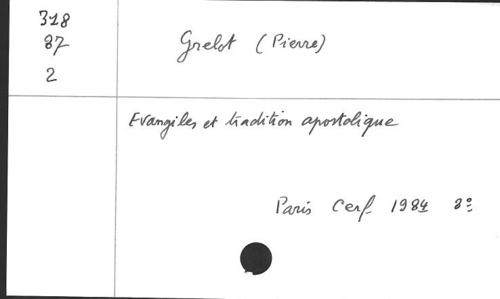 318
87
2
Grelot (Pierre)
Evangiles et tradition apostolique
Paris Cerf 1984 8º